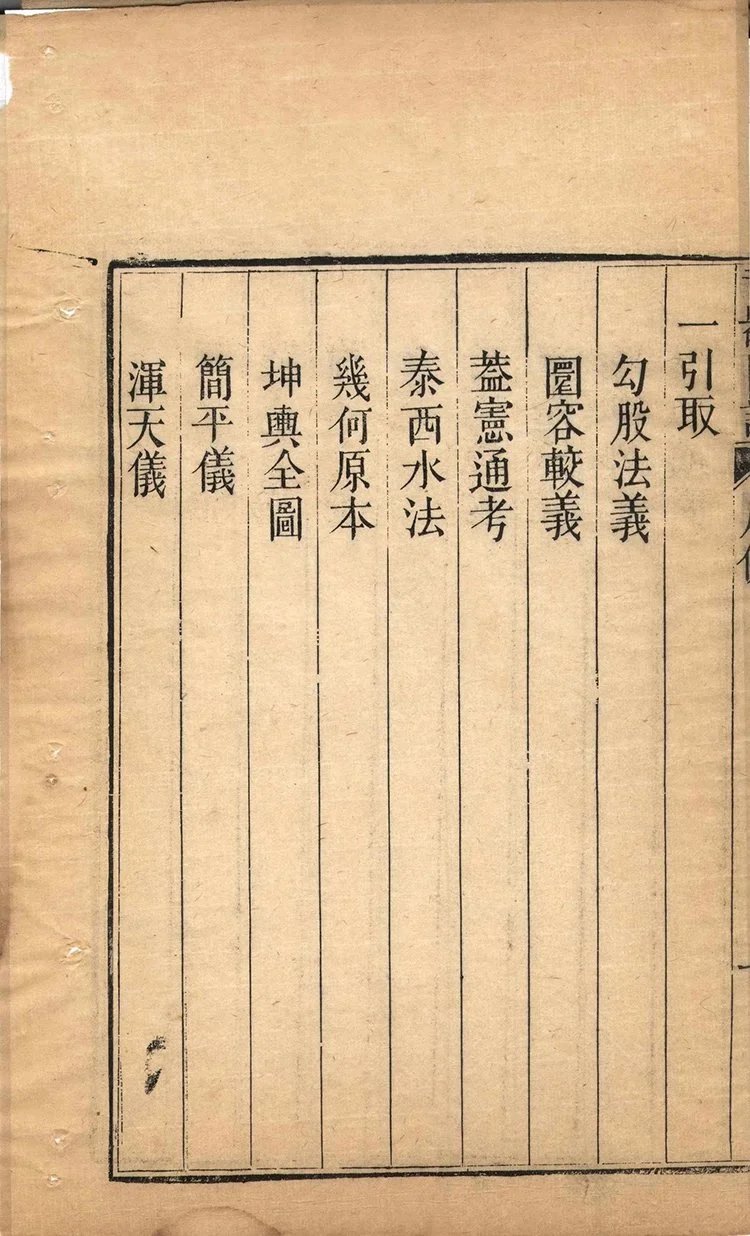 一引取
勾股法義
圜容較義
葢憲通考
泰西水法
幾何原本
坤輿全圖
簡平儀
渾天儀